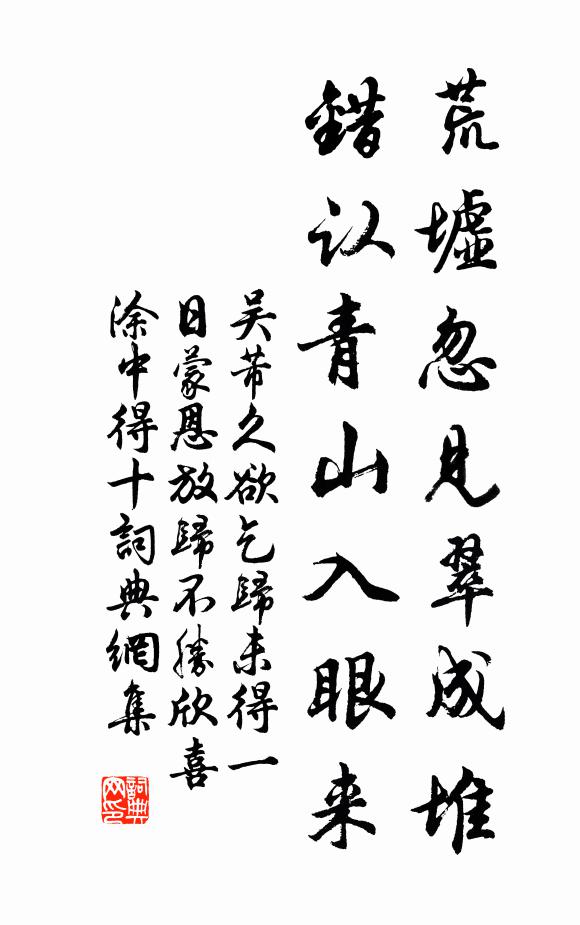 荒墟忽見翠成堆
錯认青山入眼来
吴芾久欲乞歸未得一
日蒙恩放歸不勝欣喜
涂中得十詞典網集
詞典
网印